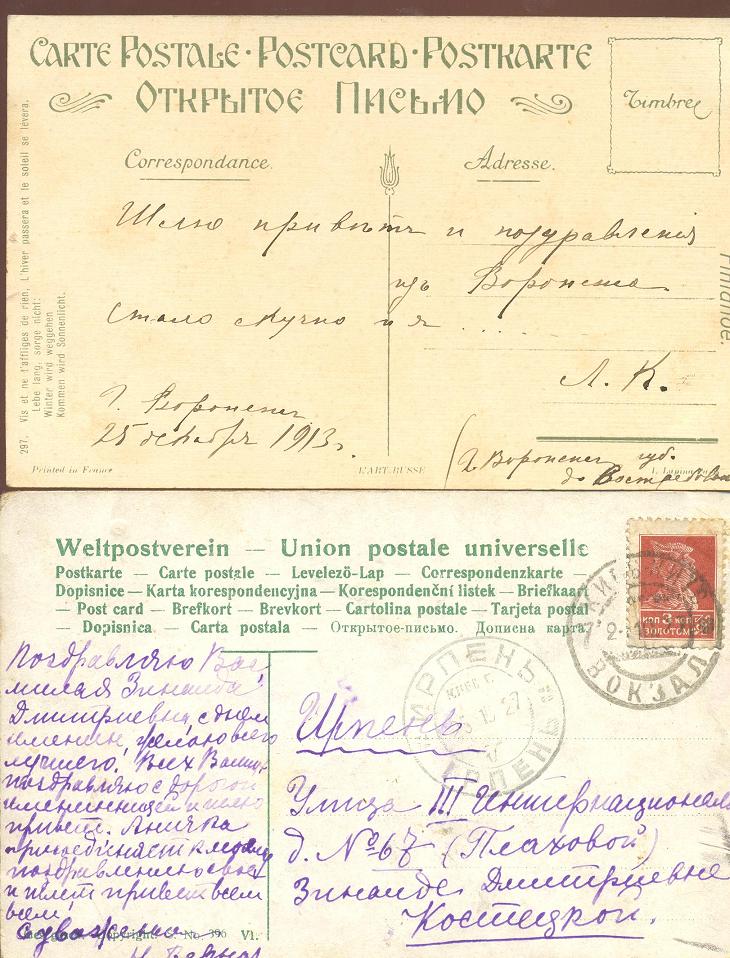 CARTE POSTALE · POSTCARD · POSTKARTE
ОТКРЫТОЕ ПИСЬМО
Timbre
Correspondance.
Adresse.
Шлю привѣтъ и поздравления
изъ Воронежа.
Стало скучно и я ....
Л. К.
г. Воронежъ
25 декабря 1913 г.
г. Воронежъ губ.
до Востребован
297. Vis et ne t'affliges de rien, L'hiver passera et le soleil se lèvera.
Lebe lang, sorge nicht:
Winter wird weggehen
Kommen wird Sonnenlicht.
Finlande.
Printed in France
L'ART-RUSSE
Weltpostverein — Union postale universelle
Postkarte — Carte postale — Levelező-Lap — Correspondenzkarte
Dopisnice — Karta korespondencyjna — Korespondenční listek — Briefkaart
— Post card — Brefkort — Brevkort — Cartolina postale — Tarjeta postal
— Dopisnica — Carta postala — Открытое-письмо. Дописна карта.
КОП 3 КОП
ЗОЛОТОМ
ВОКЗАЛ
ИРПЕНЬ
КИЕВ
27
ИРПЕНЬ
Поздравляю Вас,
милая Зинаида
Дмитриевна, с днем
именин, желаю всего
лучшего. Всех Ваших
поздравляю с дорогой
именинницей и шлю
привет. Аничка
присоединяет к моему
поздравлению свое
и шлет привет всем
всем
Ирпень
Улица III Интернационала
д. № 67 (Плаховой)
Зинаиде Дмитриевне
Костецкой.
396 VI.